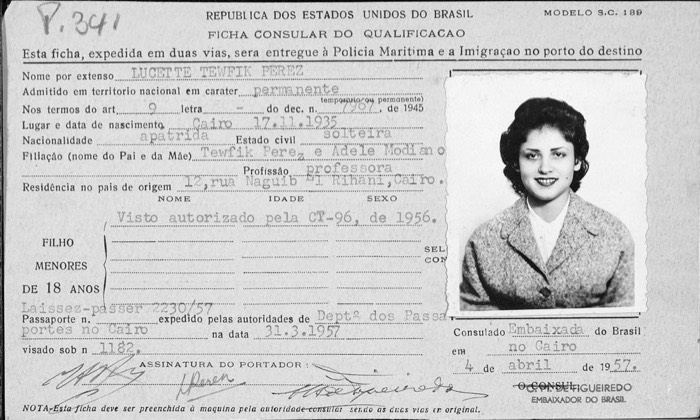 P.341
REPUBLICA DOS ESTADOS UNIDOS DO BRASIL
MODELO S.C. 139
FICHA CONSULAR DO QUALIFICACAO
Esta ficha, expedida em duas vias, sera entregue à Policia Maritima e a Imigraçao no porto do destino
Nome por extenso LUCETTE TEWFIK PEREZ
Admitido em territorio nacional em carater permanente
temporario (ou permanente)
Nos termos do art. 9 letra - do dec. n. 7967, de 1945
Lugar e data de nascimento Cairo 17.11.1935
Nacionalidade apatrida Estado civil solteira
Filiação (nome do Pai e da Mãe) Tewfik Perez e Adele Modiano
Profissão professora
Residência no país de origem 12, rue Naguib El Rihani, Cairo.
NOME IDADE SEXO
Visto autorizado pela CT-96, de 1956.
FILHO
MENORES
DE 18 ANOS
SEL
CON
Laissez-passer 2230/57
Passaporte n. expedido pelas autoridades de Deptº dos Passa
portes no Cairo na data 31.3.1957
visado sob n 1182.
ASSINATURA DO PORTADOR:
Consulado Embaixada do Brasil
no Cairo
em 4 de abril de 1957.
O CONSUL
FIGUEIREDO
EMBAIXADOR DO BRASIL.
NOTA-Esta ficha deve ser preenchida à maquina pela autoridade consular sendo as duas vias em original.